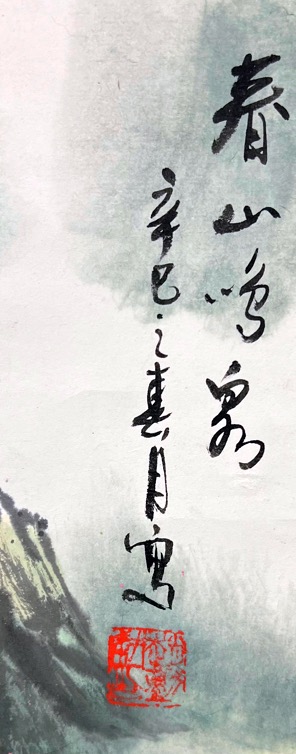 春山鸣泉
辛巳之春月写